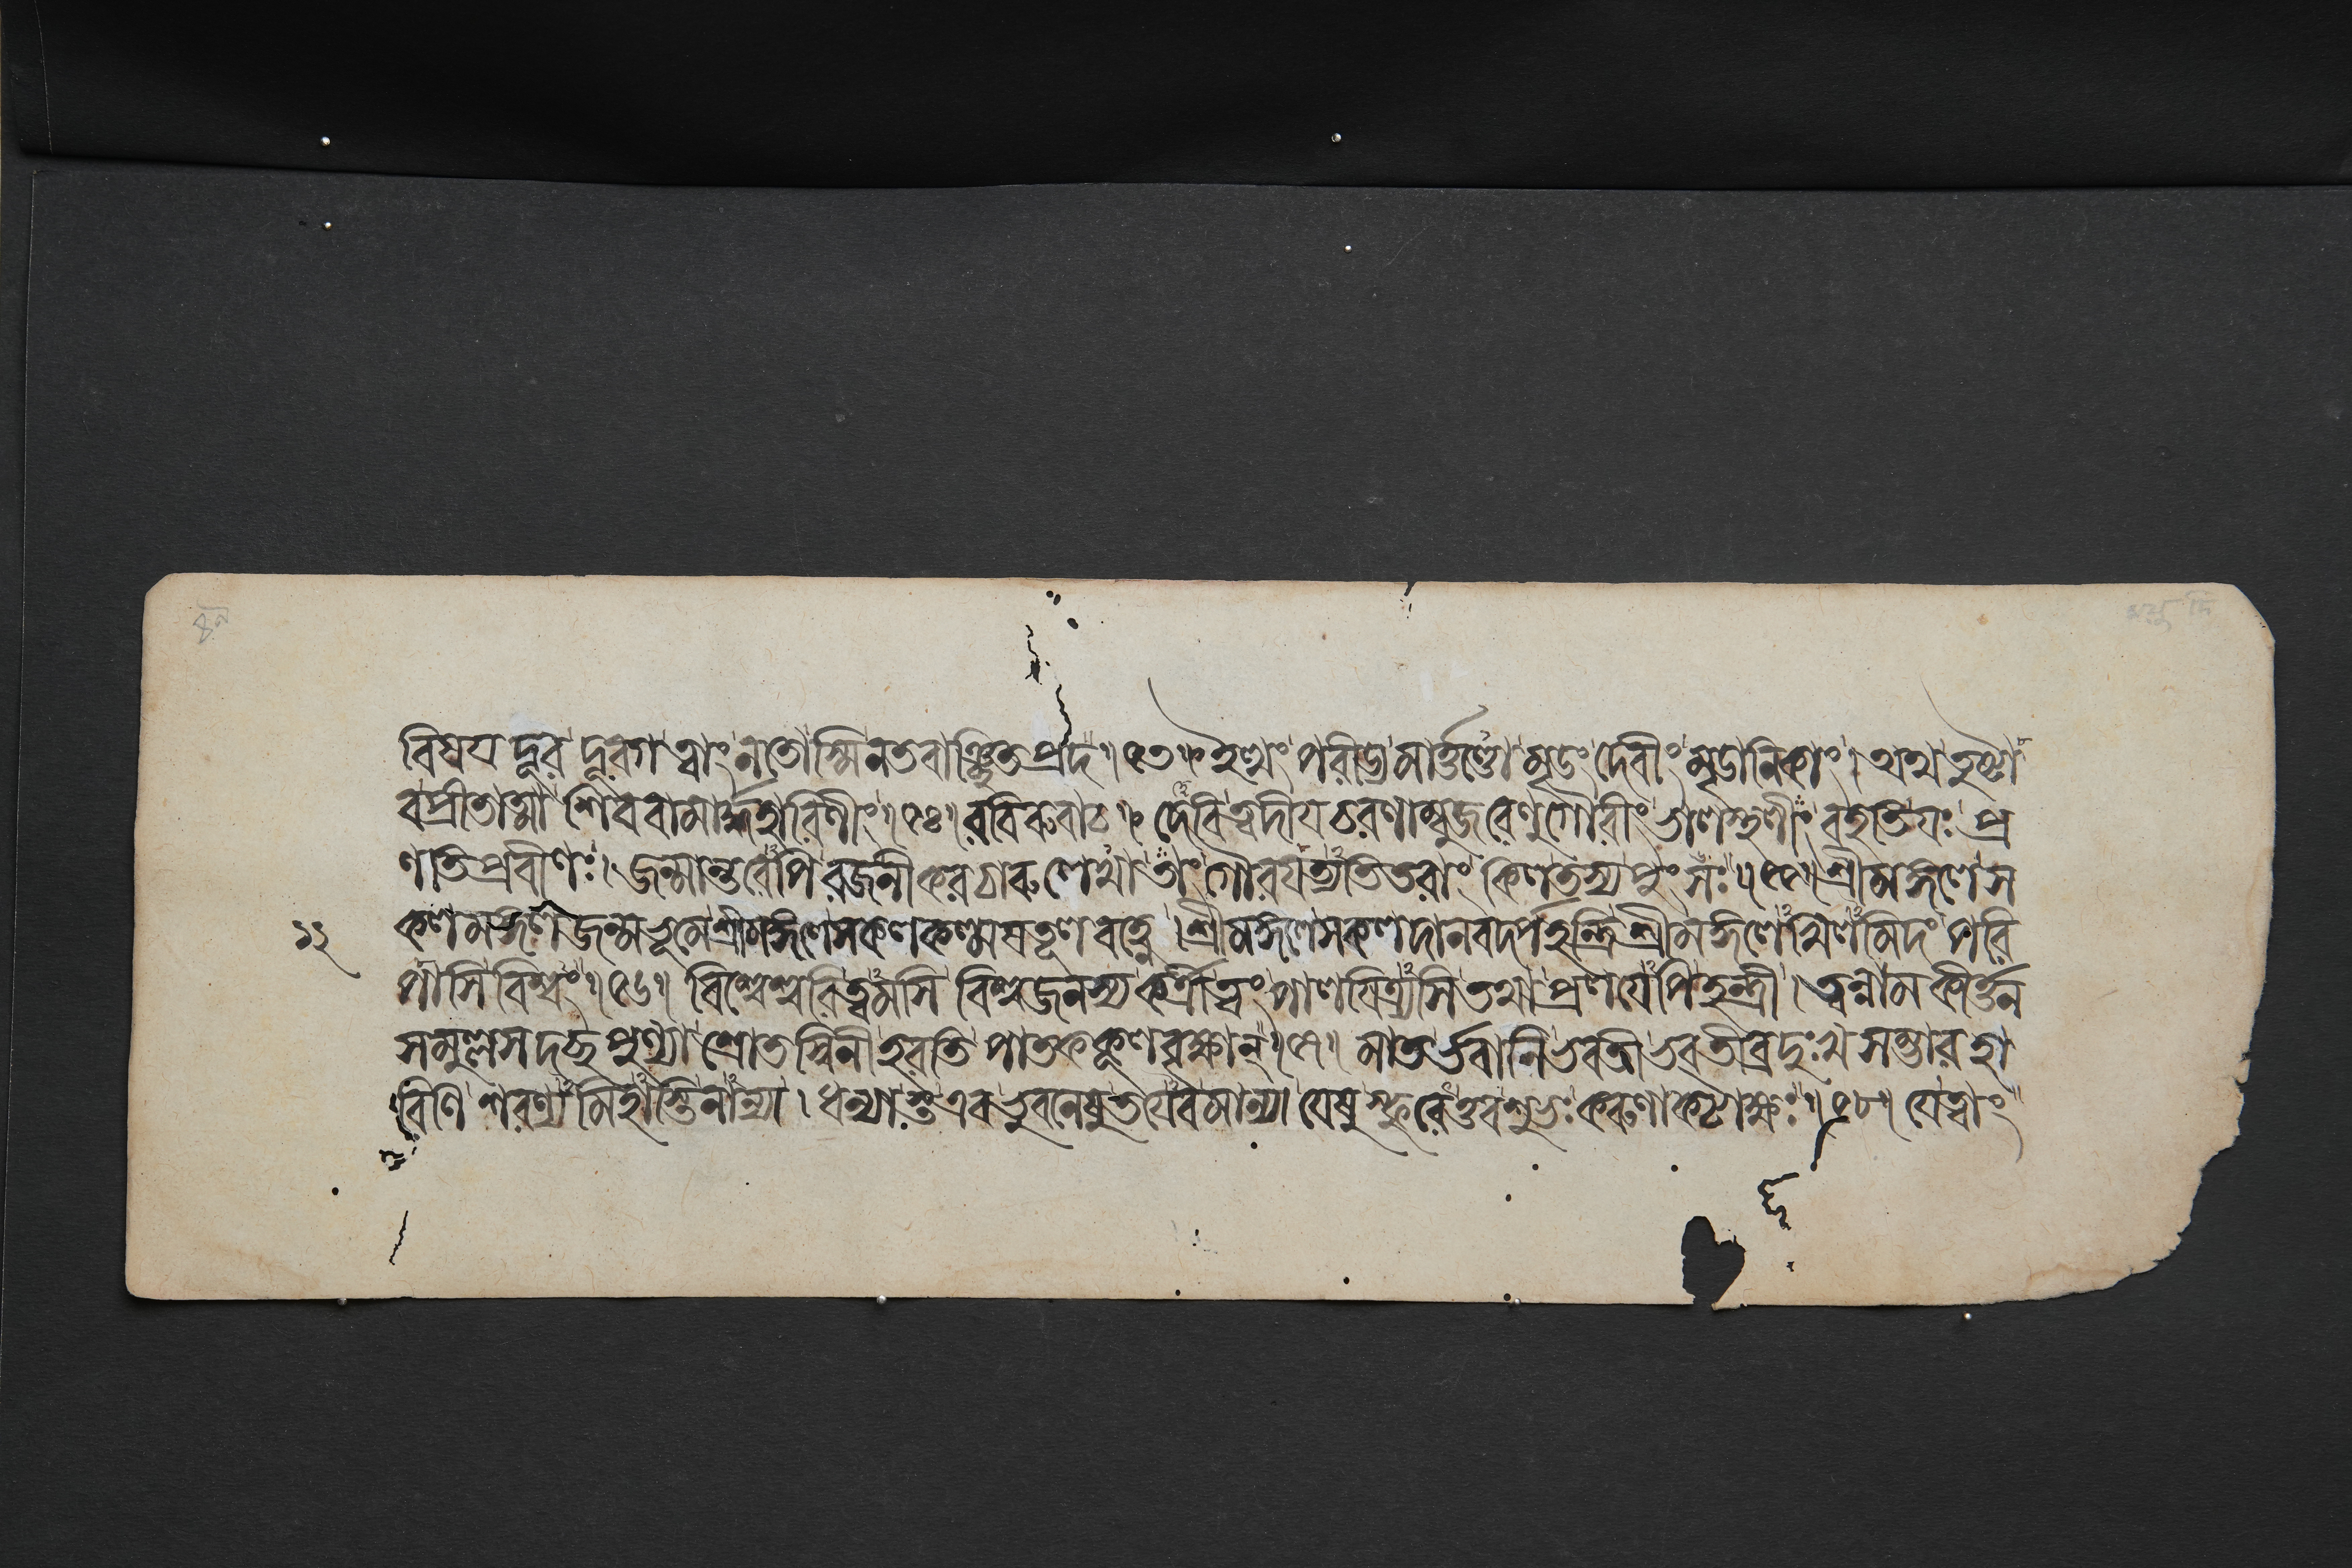 বিষয দূর দূরগ ত্বাং নতোস্মি নতবাঞ্ছিতপ্রদ॥১৩॥ ইত্থং পরীড্য মার্ত্তণ্ডো মৃডং দেবীং মৃডানিকাং। অথ তুষ্টা
ব প্রীতাত্মা শিববামার্দ্ধহারিণীং॥১৪॥ রবিরুবাচ॥ দেবি ত্বদীযচরণাম্বুজরেণুগৌরীং ভালস্থলীং বহতি যঃ প্র
ণতিপ্রবীণঃ। জন্মান্তরেপি রজনীকরচারুলেখা তাং গৌরযত্যতিতরাং কিল তস্য পুংসঃ॥১৫॥ শ্রীমঙ্গলে স
১২
কল মঙ্গল জন্মভূমে শ্রীমঙ্গলে সকলকল্মষতূলবহ্নে। শ্রীমঙ্গলে সকলদানবদর্পহন্ত্রি শ্রীমঙ্গলেখিলমিদং পরি
পাসি বিশ্বং॥১৬॥ বিশ্বেশ্বরি ত্বমসি বিশ্বজনস্য কর্ত্রী ত্বং পালযিত্র্যসি তথা প্রলযেপি হন্ত্রী। ত্বন্নামকীর্ত্তন
সমুল্লসদচ্ছপুণ্যা শ্রোতস্বিনী হরতি পাতককূলবৃক্ষান্॥১৭॥ মাতর্ভবানি ভবতী ভবতীব্রদুঃখসম্ভারহা
রিণি শরণ্যমিহাস্তি নান্যা। ধন্যাস্ত এব ভুবনেষু ত এব মান্যা যেষু স্ফুরেত্তব শুভঃ করুণাকটাক্ষঃ॥১৮॥ যে ত্বাং